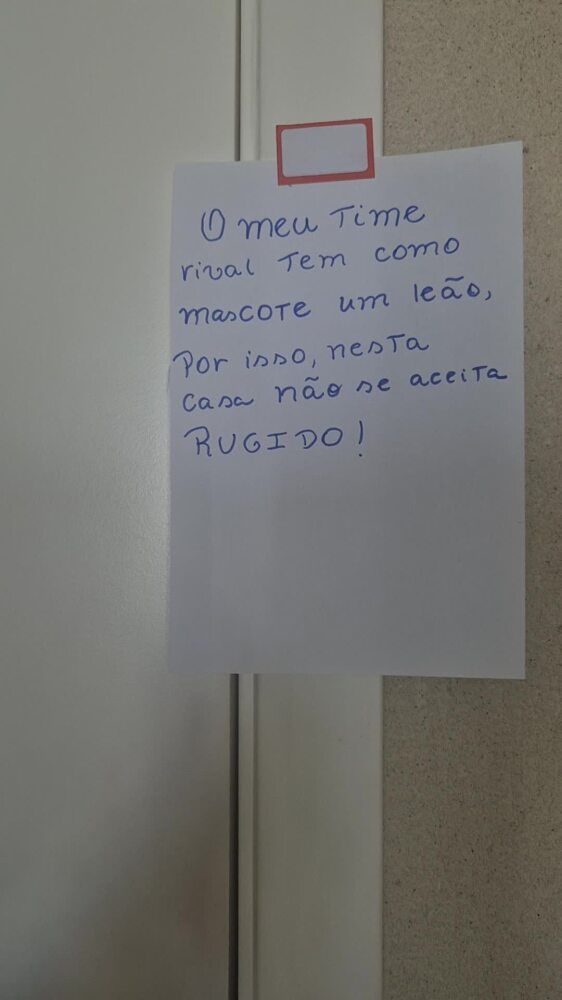 O meu Time
rival Tem como
mascoTe um leão,
Por isso, nesTa
casa não se aceiTa
RUGIDO!